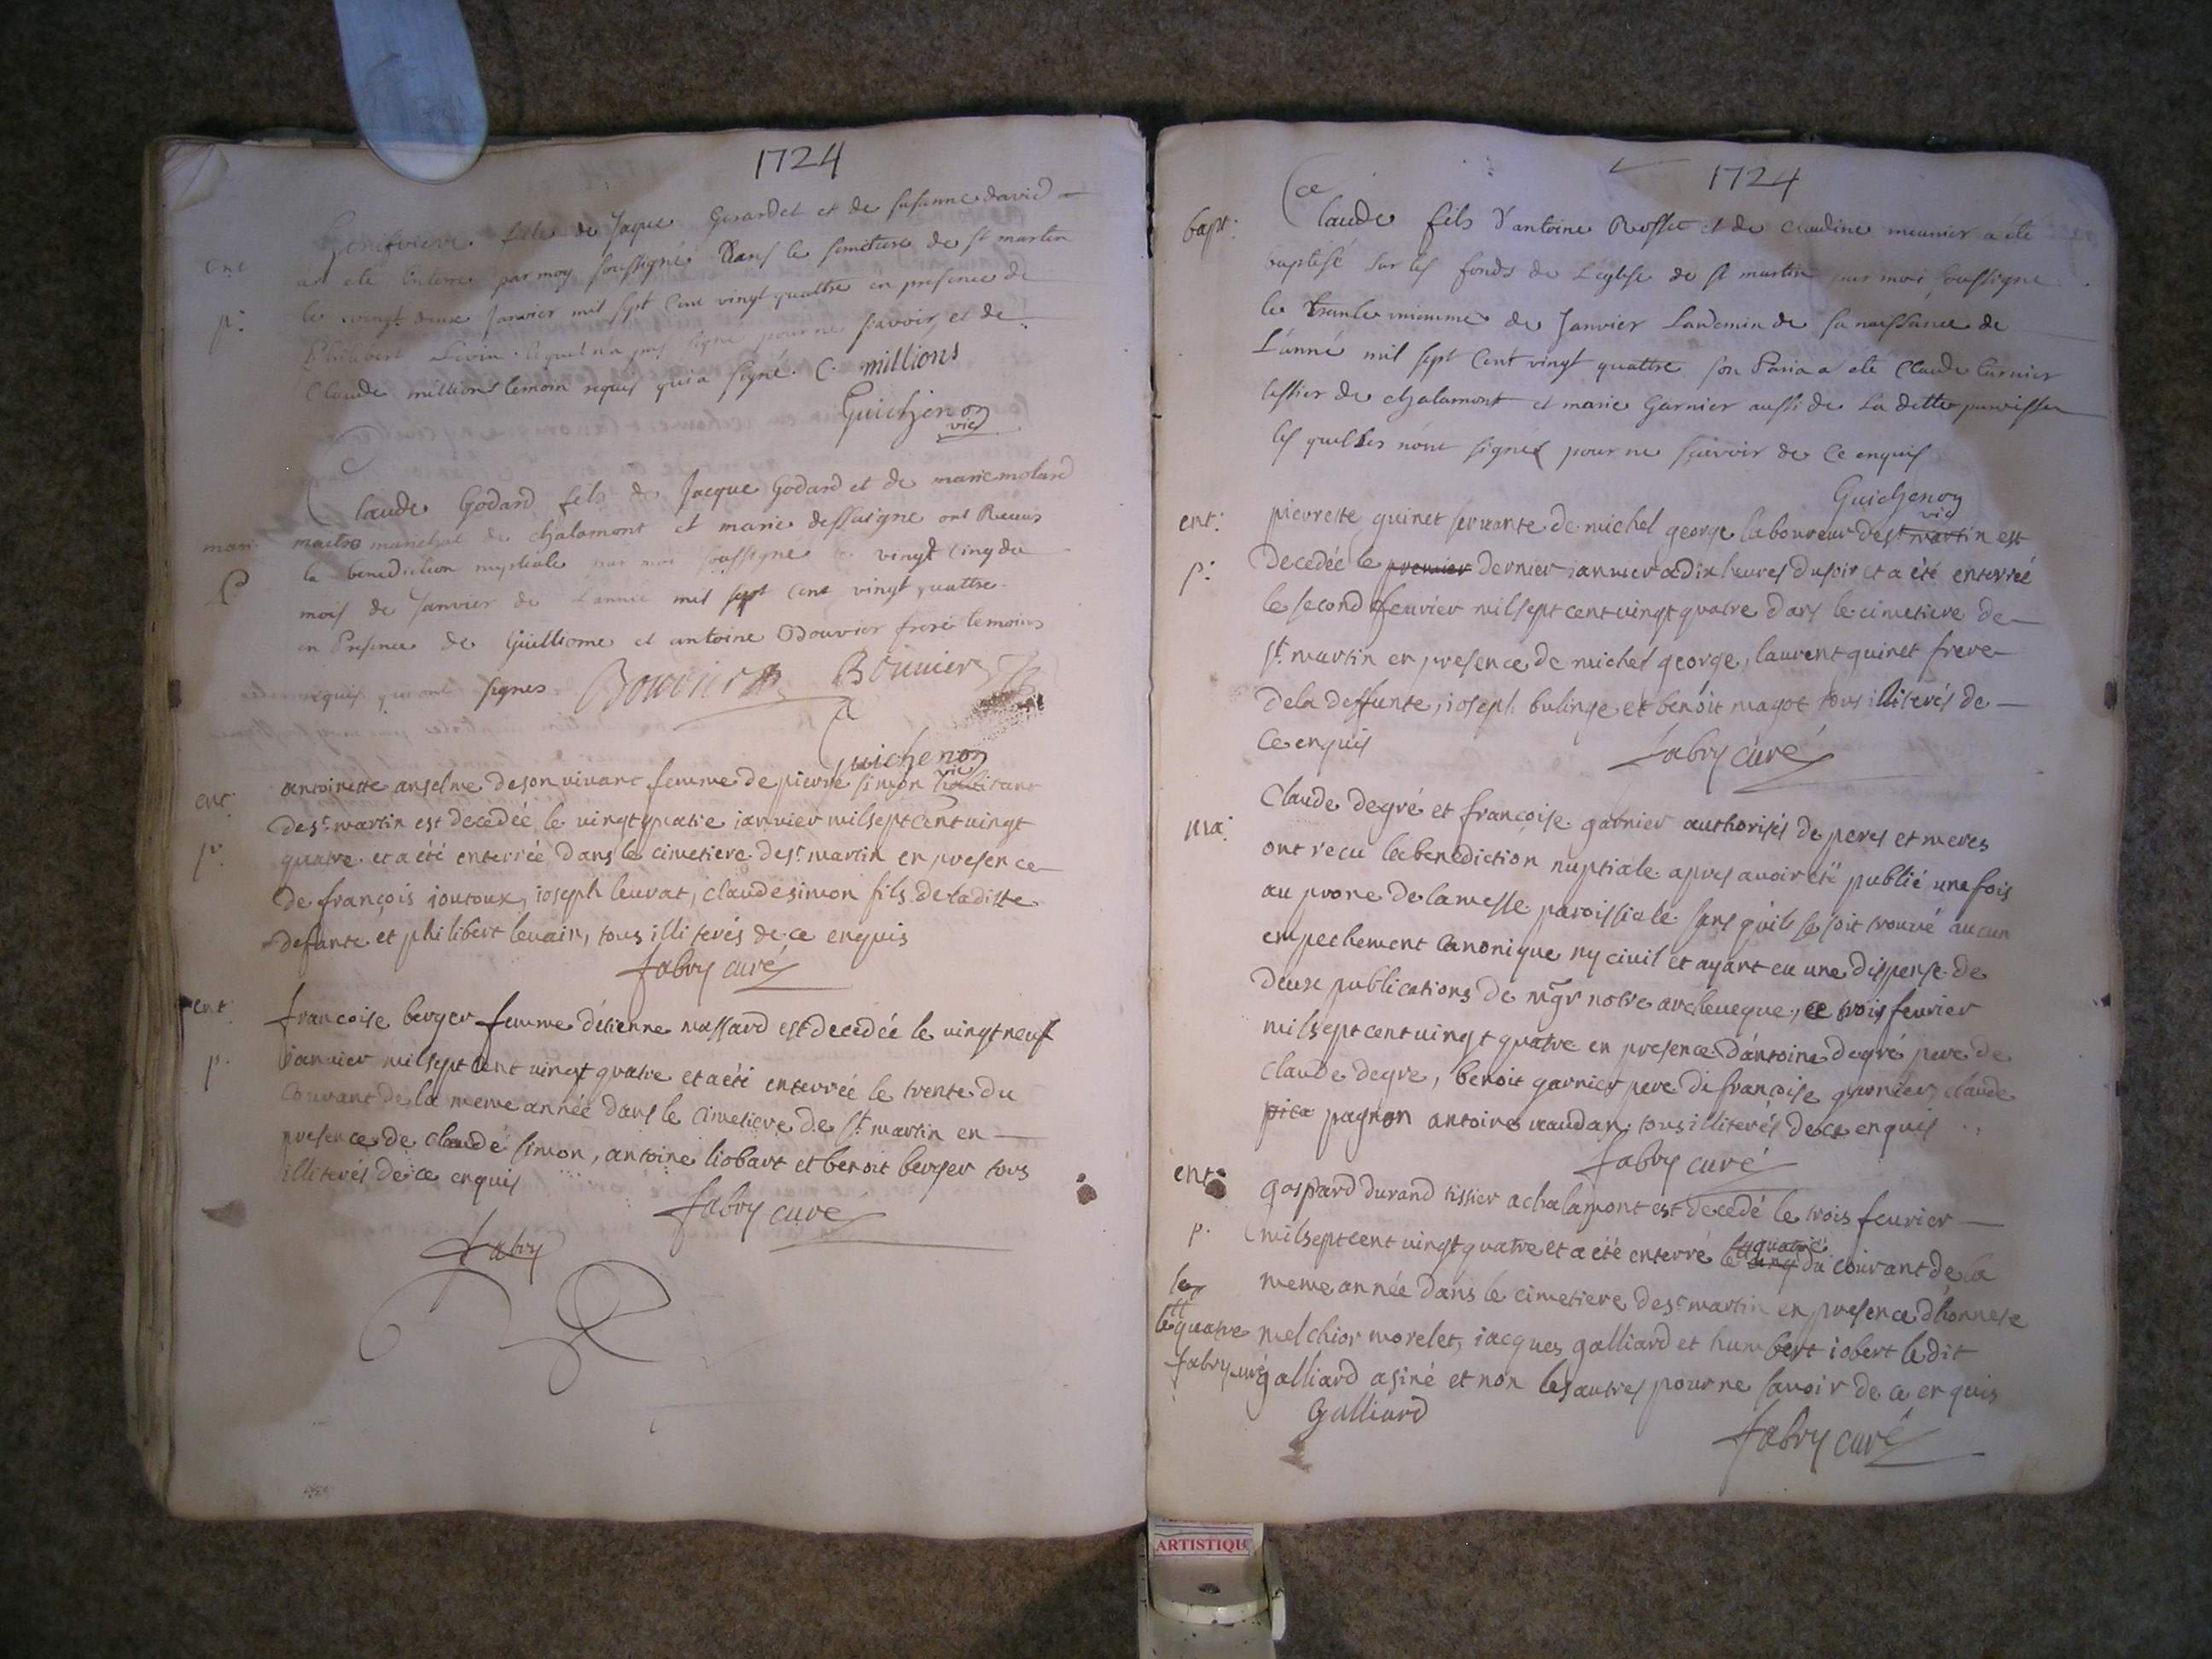 1724
Genifvieve fille de Jaque Girardet et de susanne david
ent
a ete enterre par moy soussigné Dans le semetiere de st martin
p:
le vingt deux Janvier mil sept Cent vingt quattre en presence de
Philibert Levin lequel n'a pas signé pour ne sçavoir et de
Claude millions temoin requis qui a signé. C. millions
Guichenon
vic
Claude Godard fils de Jacque Godard et de marie molard
mari
maitre marichal de chalamont et marie dessaigne ont Receus
la benediction nuptiale par moi soussigné le vingt cinq du
P
mois de Janvier de L'année mil sept Cent vingt quattre
en Presence de Guilliome et antoine Bouvier frere temoins
requis qui ont signes Bouvier Bouvier
Guichenon
vic
antoinette anselme de son vivant femme de pierre simon habitant
ent:
de st martin est decedée le vingt quatre ianvier mil sept cent vingt
p:
quatre et a été enterrée dans le cimetiere de st martin en presence
de françois joutoux, ioseph leurat, claude simon fils de la ditte
defunte et philibert levain, tous illiterés de ce enquis
fabry curé
ent:
francoise berger femme d'etienne massard est decedée le vingt neuf
p.
ianvier mil sept cent vingt quatre et a été enterrée le trente du
courant de la meme année dans le cimetiere de st martin en
presence de claude simon, antoine liobart et benoit berger tous
illiterés de ce enquis
fabry curé
fabry
1724
bapt:
Claude fils d'antoine Rosset et de Claudine meunier a été
baptisé sur les fonds de L'eglise de st martin par moi soussigné
le trante uniemme de Janvier Landemin de sa naissance de
L'anné mil sept Cent vingt quattre son Paria a ete Claude
tissier de chalamont et marie Garnier aussi de La ditte paroisse
les quelles n'ont signés pour ne sçavoir de Ce enquis
Guichenon
vic
ent:
pierrette guinet servante de michel george laboureur de st martin est
p:
decedée le premier dernier ianvier a dix heures du soir et a été enterrée
le second fevrier mil sept cent vingt quatre dans le cimetiere de
st martin en presence de michel george, laurent guinet frere
de la deffunte, ioseph bulinge et benoit magot tous illiterés de
ce enquis
fabry curé
Claude degré et françoise garnier authorisés de peres et meres
ma:
ont recu la benediction nuptiale apres avoir été publié une fois
au prone de la messe paroissiale sans qu'il se soit trouvé aucun
empechement canonique ny civil et ayant eu une dispense de
deux publications de mgr notre archeveque, ce trois fevrier
mil sept cent vingt quatre en presence d'antoine degré pere de
claude degre, benoit garnier pere de françoise garnier, claude
pagnon antoine vaudan tous illiterés de ce enquis
fabry curé
ent:
gaspard durand tissier a chalamont est decedé le trois fevrier
p.
mil sept cent vingt quatre et a été enterré le quatre du courant de la
meme année dans le cimetiere de st martin en presence d'honnete
le quatre
melchior morelet, iacques galliard et humbert iobert le dit
fabry curé
galliard a siné et non les autres pour ne savoir de ce enquis
galliard
fabry curé
ARTISTIQU